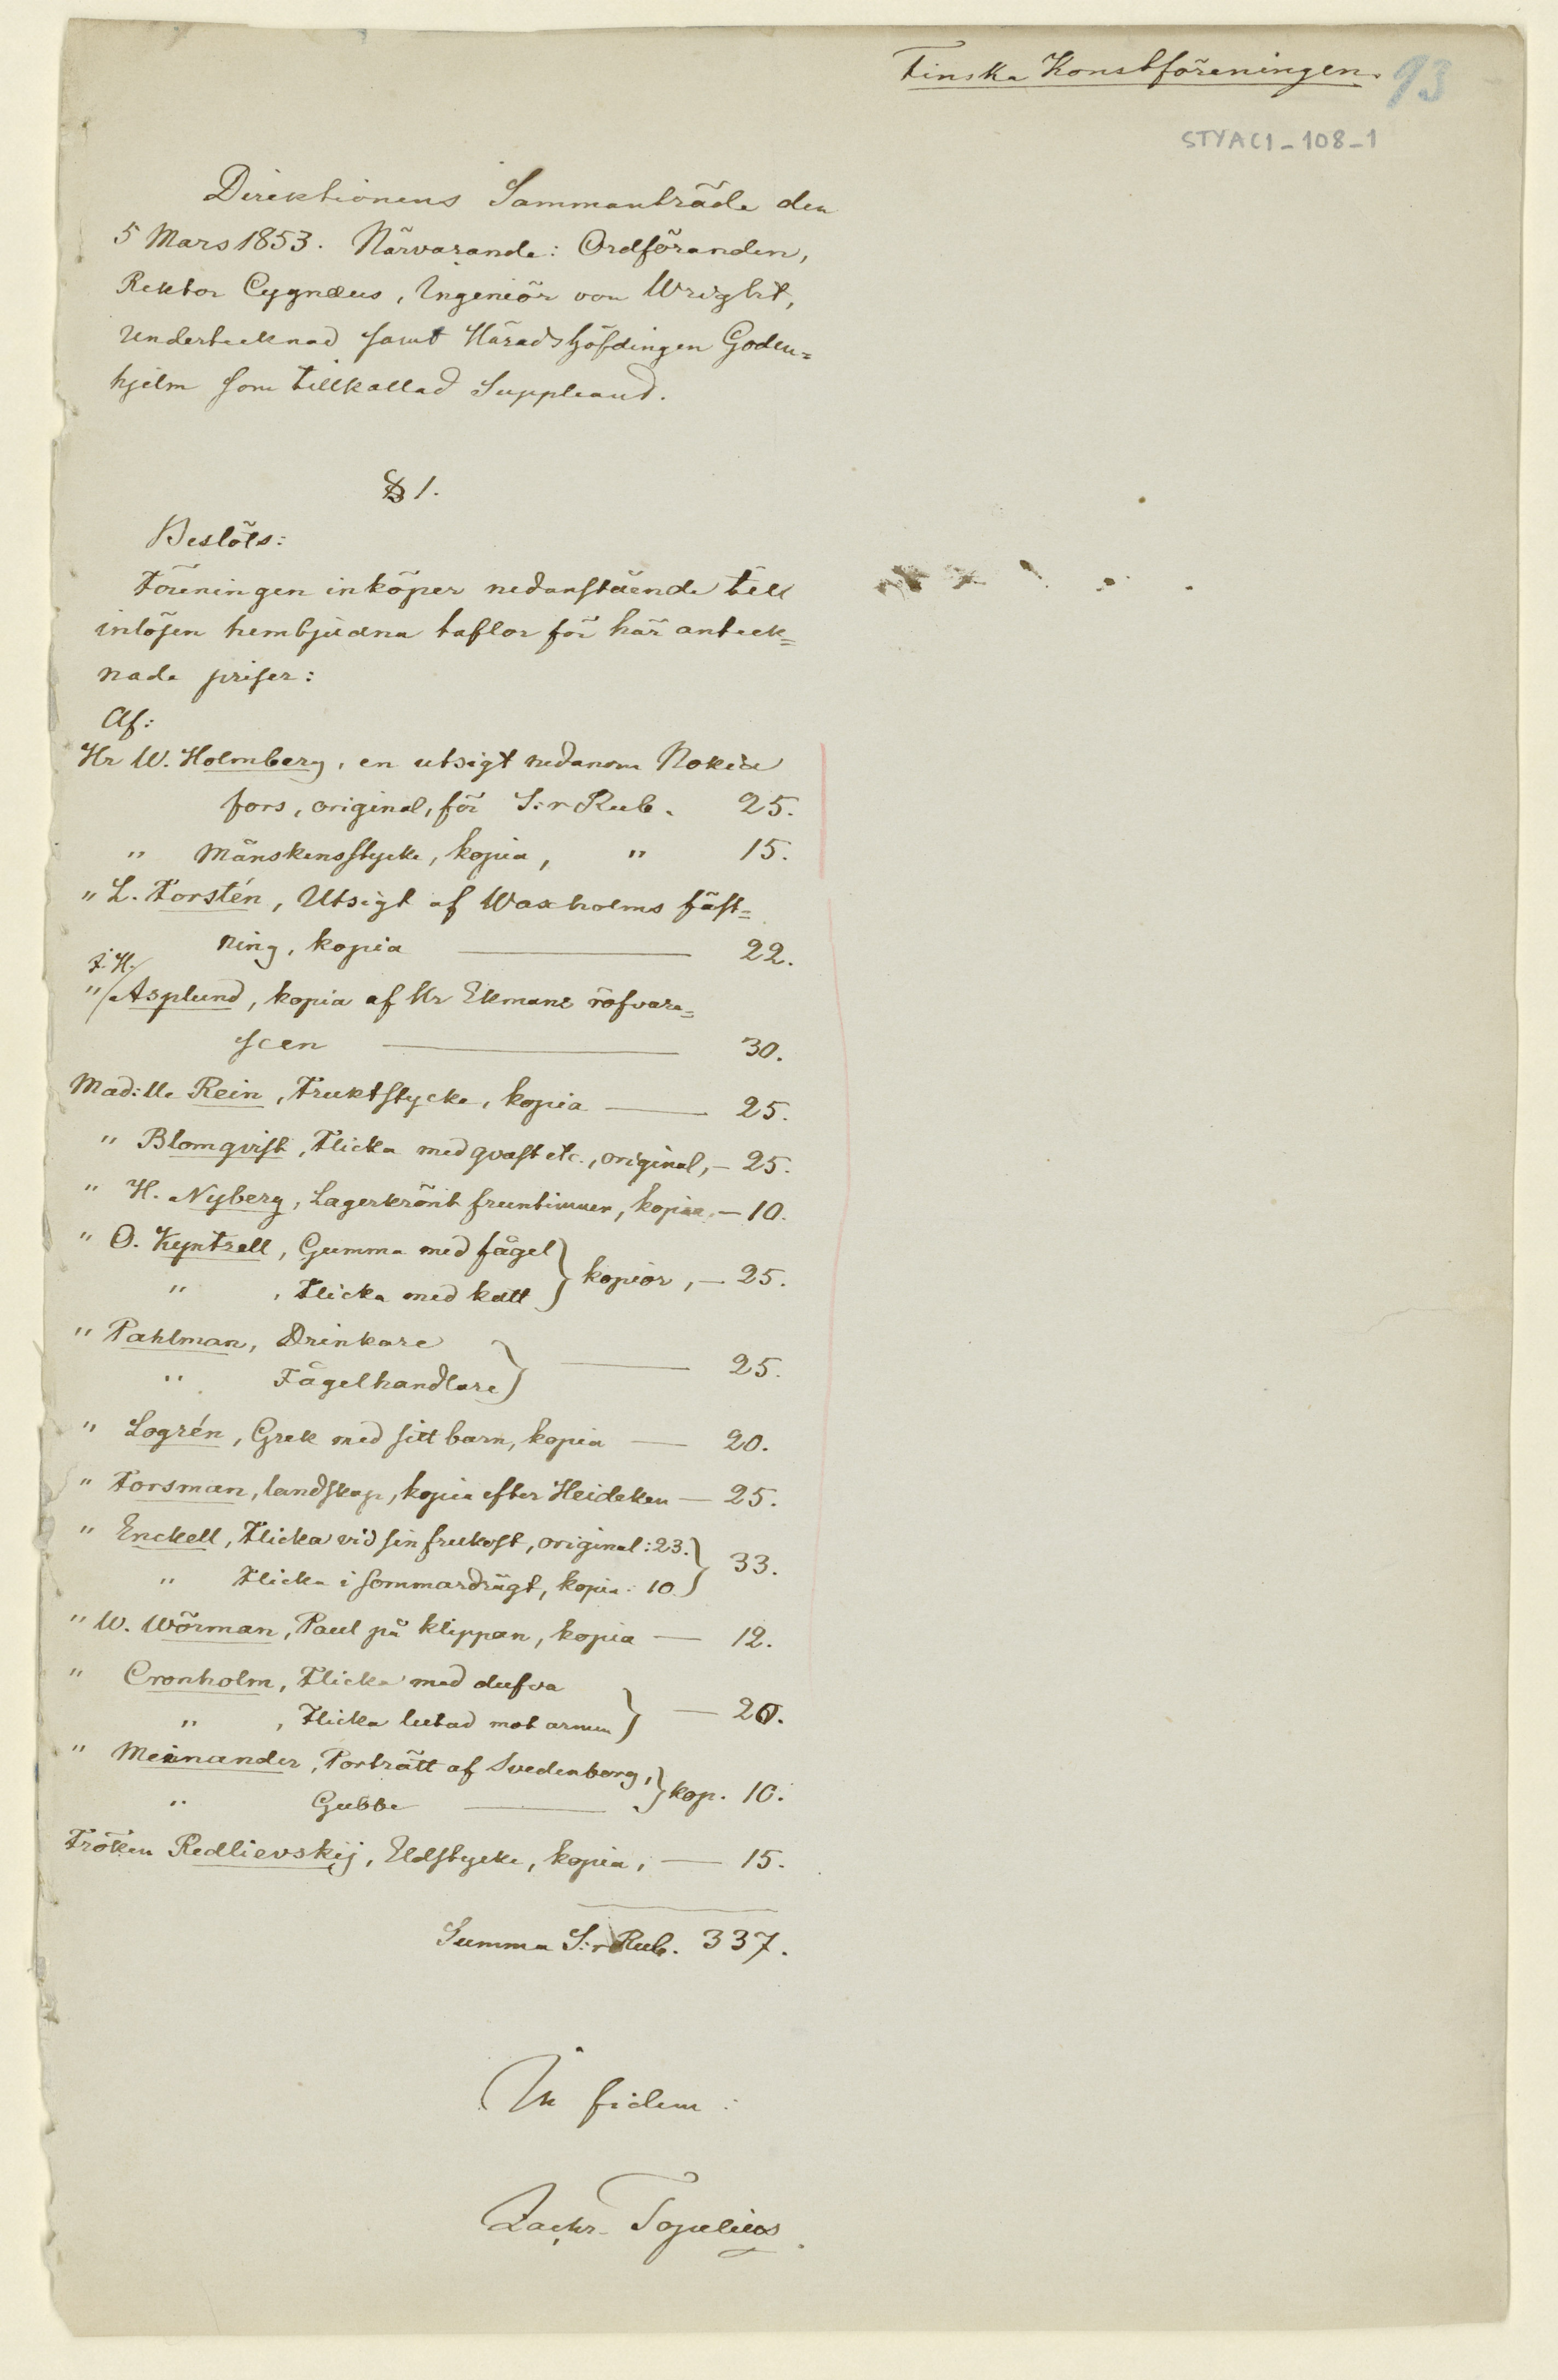 Finska Konstföreningen. 93
STYAC1_108_1
Direktionens Sammanträde den
5 Mars 1853. Närvarande: Ordföranden,
Rektor Cygnæus, Ingeniör von Wright,
undertecknad samt Häradshöfdingen Goden=
hjelm som tillkallad Suppleant.
§ 1.
Beslöts:
Föreningen inköper nedanstående till
inlösen hembjudna taflor för här anteck=
nade priser:
Af:
Hr W. Holmberg, en utsigt nedanom Nokia
fors, original, för S:r Rub. 25.
" Månskensstycke, kopia, " 15.
" L. Forstén, Utsigt af Waxholms fäst=
ning, kopia — 22.
F. H.
" Asplund, kopia af Hr Ekmans röfvare=
scen — 30.
Mad:lle Rein, Fruktstycke, kopia — 25.
" Blomqvist, Flicka med qvast etc., original, — 25.
" H. Nyberg, Lagerkrönt fruntimmer, kopia — 10.
" O. Kyntzell, Gumma med fågel
" , Flicka med katt } kopior, — 25.
" Pahlman, Drinkare
" Fågelhandlare } — 25.
" Logrén, Grek med sitt barn, kopia — 20.
" Forsman, landskap, kopia efter Heideken — 25.
" Enckell, Flicka vid sin frukost, original: 23.
" Flicka i sommardrägt, kopia: 10 } 33.
" W. Wörman, Paul på klippan, kopia — 12.
" Cronholm, Flicka med dufva
" , Flicka lutad mot armen } — 20.
" Meinander, Porträtt af Svedenborg,
" Gubbe — } kop. 10.
Fröken Redlievskij, Eldstycke, kopia, — 15.
Summa S:r Rub. 337.
In fidem:
Zachr. Topelius.